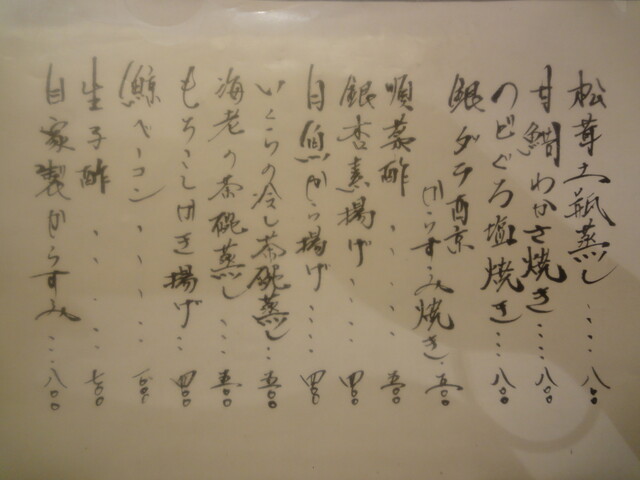 松茸土瓶蒸し....八〇〇
甘鯛わかさ焼き....八〇〇
のどぐろ塩焼き...八〇〇
銀ダラ西京
からすみ焼き.五〇
順菜酢....五〇〇
銀杏素揚げ....四〇〇
目魚から揚げ....四〇〇
いくらの冷し茶碗蒸し...五〇〇
海老の茶碗蒸し....五〇〇
もろこしかき揚げ...四〇〇
鯨ベーコン....
生子酢....七〇〇
自家製からすみ...八〇〇